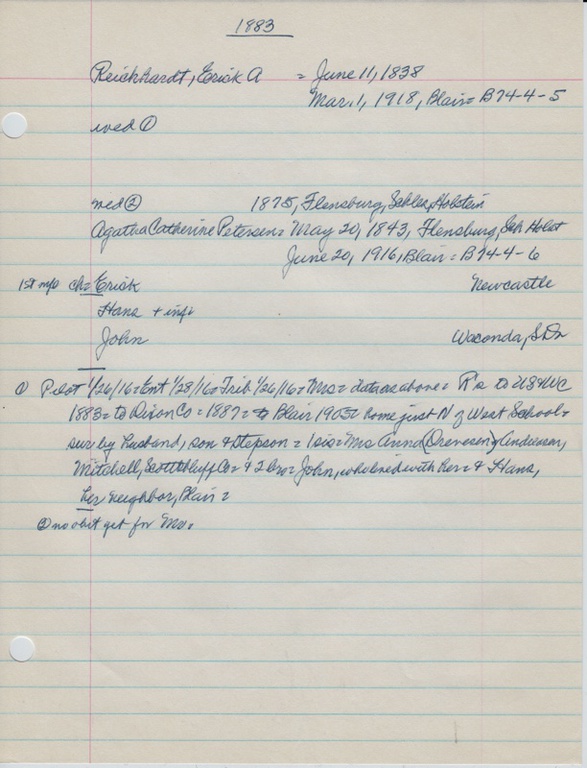 1883
Reichhardt, Erick A = June 11, 1838
Mar. 1, 1918, Blair = B74-4-5
wed ①
wed ② 1875, Flensburg, Holstein
Agatha Catherine Petersen = May 20, 1843, Flensburg, Holst
June 20, 1916, Blair = B74-4-6
1st ch = Erick Newcastle
Hans + inf
John Waconda, S.D.
① Pilot 1/26/16 = Ent 1/28/16 = Trib 1/26/16 = Mrs = data as above = R's to US & WC
1883 = to Dixon Co = 1887 = to Blair 1905 = home just N of West School =
sur by husband, son & stepson = 1 sis = Mrs Anna Andersen,
Mitchell, Scottsbluff Co = & 2 bro = John, who lived with her = & Hans,
her neighbor, Blair =
② no obit get for Mr.